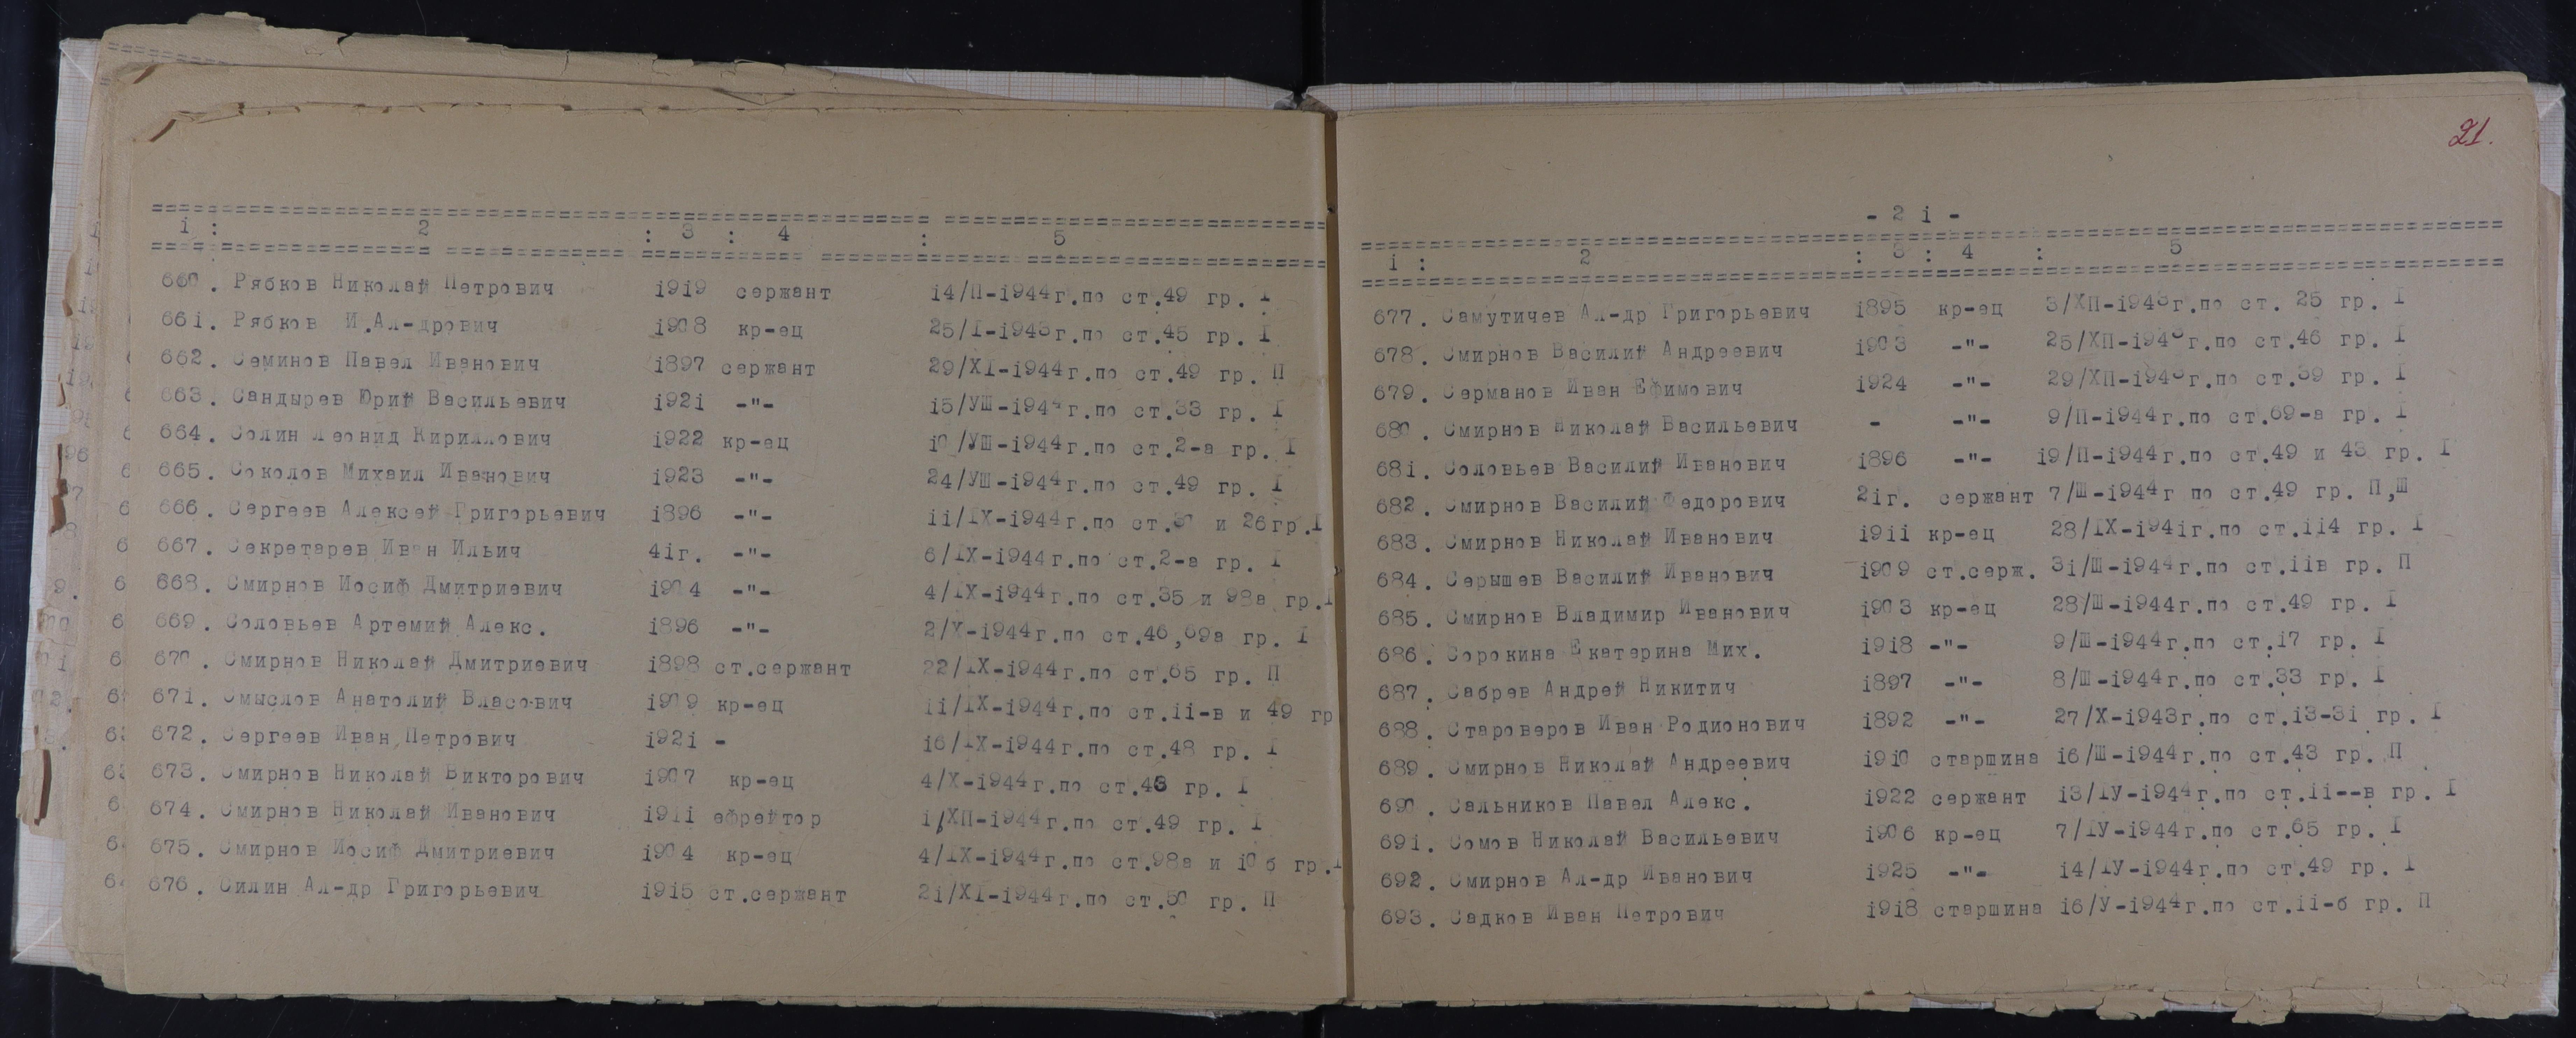 1 : 2 : 3 : 4 : 5
660. Рябков Николай Петрович 1919 сержант 14/П-1944г.по ст.49 гр. I
661. Рябков И.Ал-дрович 1908 кр-ец 25/I-1943г.по ст.45 гр. I
662. Семинов Павел Иванович 1897 сержант 29/XI-1944г.по ст.49 гр. П
663. Сандырев Юрий Васильевич 1921 -"- 15/УШ-1944г.по ст.33 гр. I
664. Солин Леонид Кириллович 1922 кр-ец 10/УШ-1944г.по ст.2-а гр. I
665. Соколов Михаил Иванович 1923 -"- 24/УШ-1944г.по ст.49 гр. I
666. Сергеев Алексей Григорьевич 1896 -"- 11/IX-1944г.по ст.30 и 26гр.I
667. Секретарев Иван Ильич 41г. -"- 6/IX-1944г.по ст.2-а гр. I
668. Смирнов Иосиф Дмитриевич 1904 -"- 4/IX-1944г.по ст.35 и 98а гр.I
669. Соловьев Артемий Алекс. 1896 -"- 2/X-1944г.по ст.46,69а гр. I
670. Смирнов Николай Дмитриевич 1898 ст.сержант 22/IX-1944г.по ст.65 гр. П
671. Смыслов Анатолий Власович 1909 кр-ец 11/IX-1944г.по ст.11-в и 49 гр
672. Сергеев Иван Петрович 1921 - 16/IX-1944г.по ст.48 гр. I
673. Смирнов Николай Викторович 1907 кр-ец 4/X-1944г.по ст.43 гр. I
674. Смирнов Николай Иванович 1911 ефрейтор 1/ХП-1944г.по ст.49 гр. I
675. Смирнов Иосиф Дмитриевич 1904 кр-ец 4/IX-1944г.по ст.98а и 10б гр.I
676. Силин Ал-др Григорьевич 1915 ст.сержант 21/XI-1944г.по ст.50 гр. П
21.
- 2 1 -
1 : 2 : 3 : 4 : 5
677. Самутичев Ал-др Григорьевич 1895 кр-ец 3/ХП-1943г.по ст. 25 гр. I
678. Смирнов Василий Андреевич 1903 -"- 25/ХП-1943г.по ст.46 гр. I
679. Серманов Иван Ефимович 1924 -"- 29/ХП-1943г.по ст.39 гр. I
680. Смирнов Николай Васильевич - -"- 9/П-1944г.по ст.69-а гр. I
681. Соловьев Василий Иванович 1896 -"- 19/П-1944г.по ст.49 и 43 гр. I
682. Смирнов Василий Федорович 21г. сержант 7/Ш-1944г по ст.49 гр. П,Ш
683. Смирнов Николай Иванович 1911 кр-ец 28/IX-1941г.по ст.114 гр. I
684. Серышев Василий Иванович 1909 ст.серж. 31/Ш-1944г.по ст.11в гр. П
685. Смирнов Владимир Иванович 1903 кр-ец 28/Ш-1944г.по ст.49 гр. I
686. Сорокина Екатерина Мих. 1918 -"- 9/Ш-1944г.по ст.17 гр. I
687. Сабрев Андрей Никитич 1897 -"- 8/Ш-1944г.по ст.33 гр. I
688. Староверов Иван Родионович 1892 -"- 27/X-1943г.по ст.13-31 гр. I
689. Смирнов Николай Андреевич 1910 старшина 16/Ш-1944г.по ст.43 гр. П
690. Сальников Павел Алекс. 1922 сержант 13/IУ-1944г.по ст.11--в гр. I
691. Сомов Николай Васильевич 1906 кр-ец 7/IУ-1944г.по ст.65 гр. I
692. Смирнов Ал-др Иванович 1925 -"- 14/IУ-1944г.по ст.49 гр. I
693. Садков Иван Петрович 1918 старшина 16/У-1944г.по ст.11-б гр. П